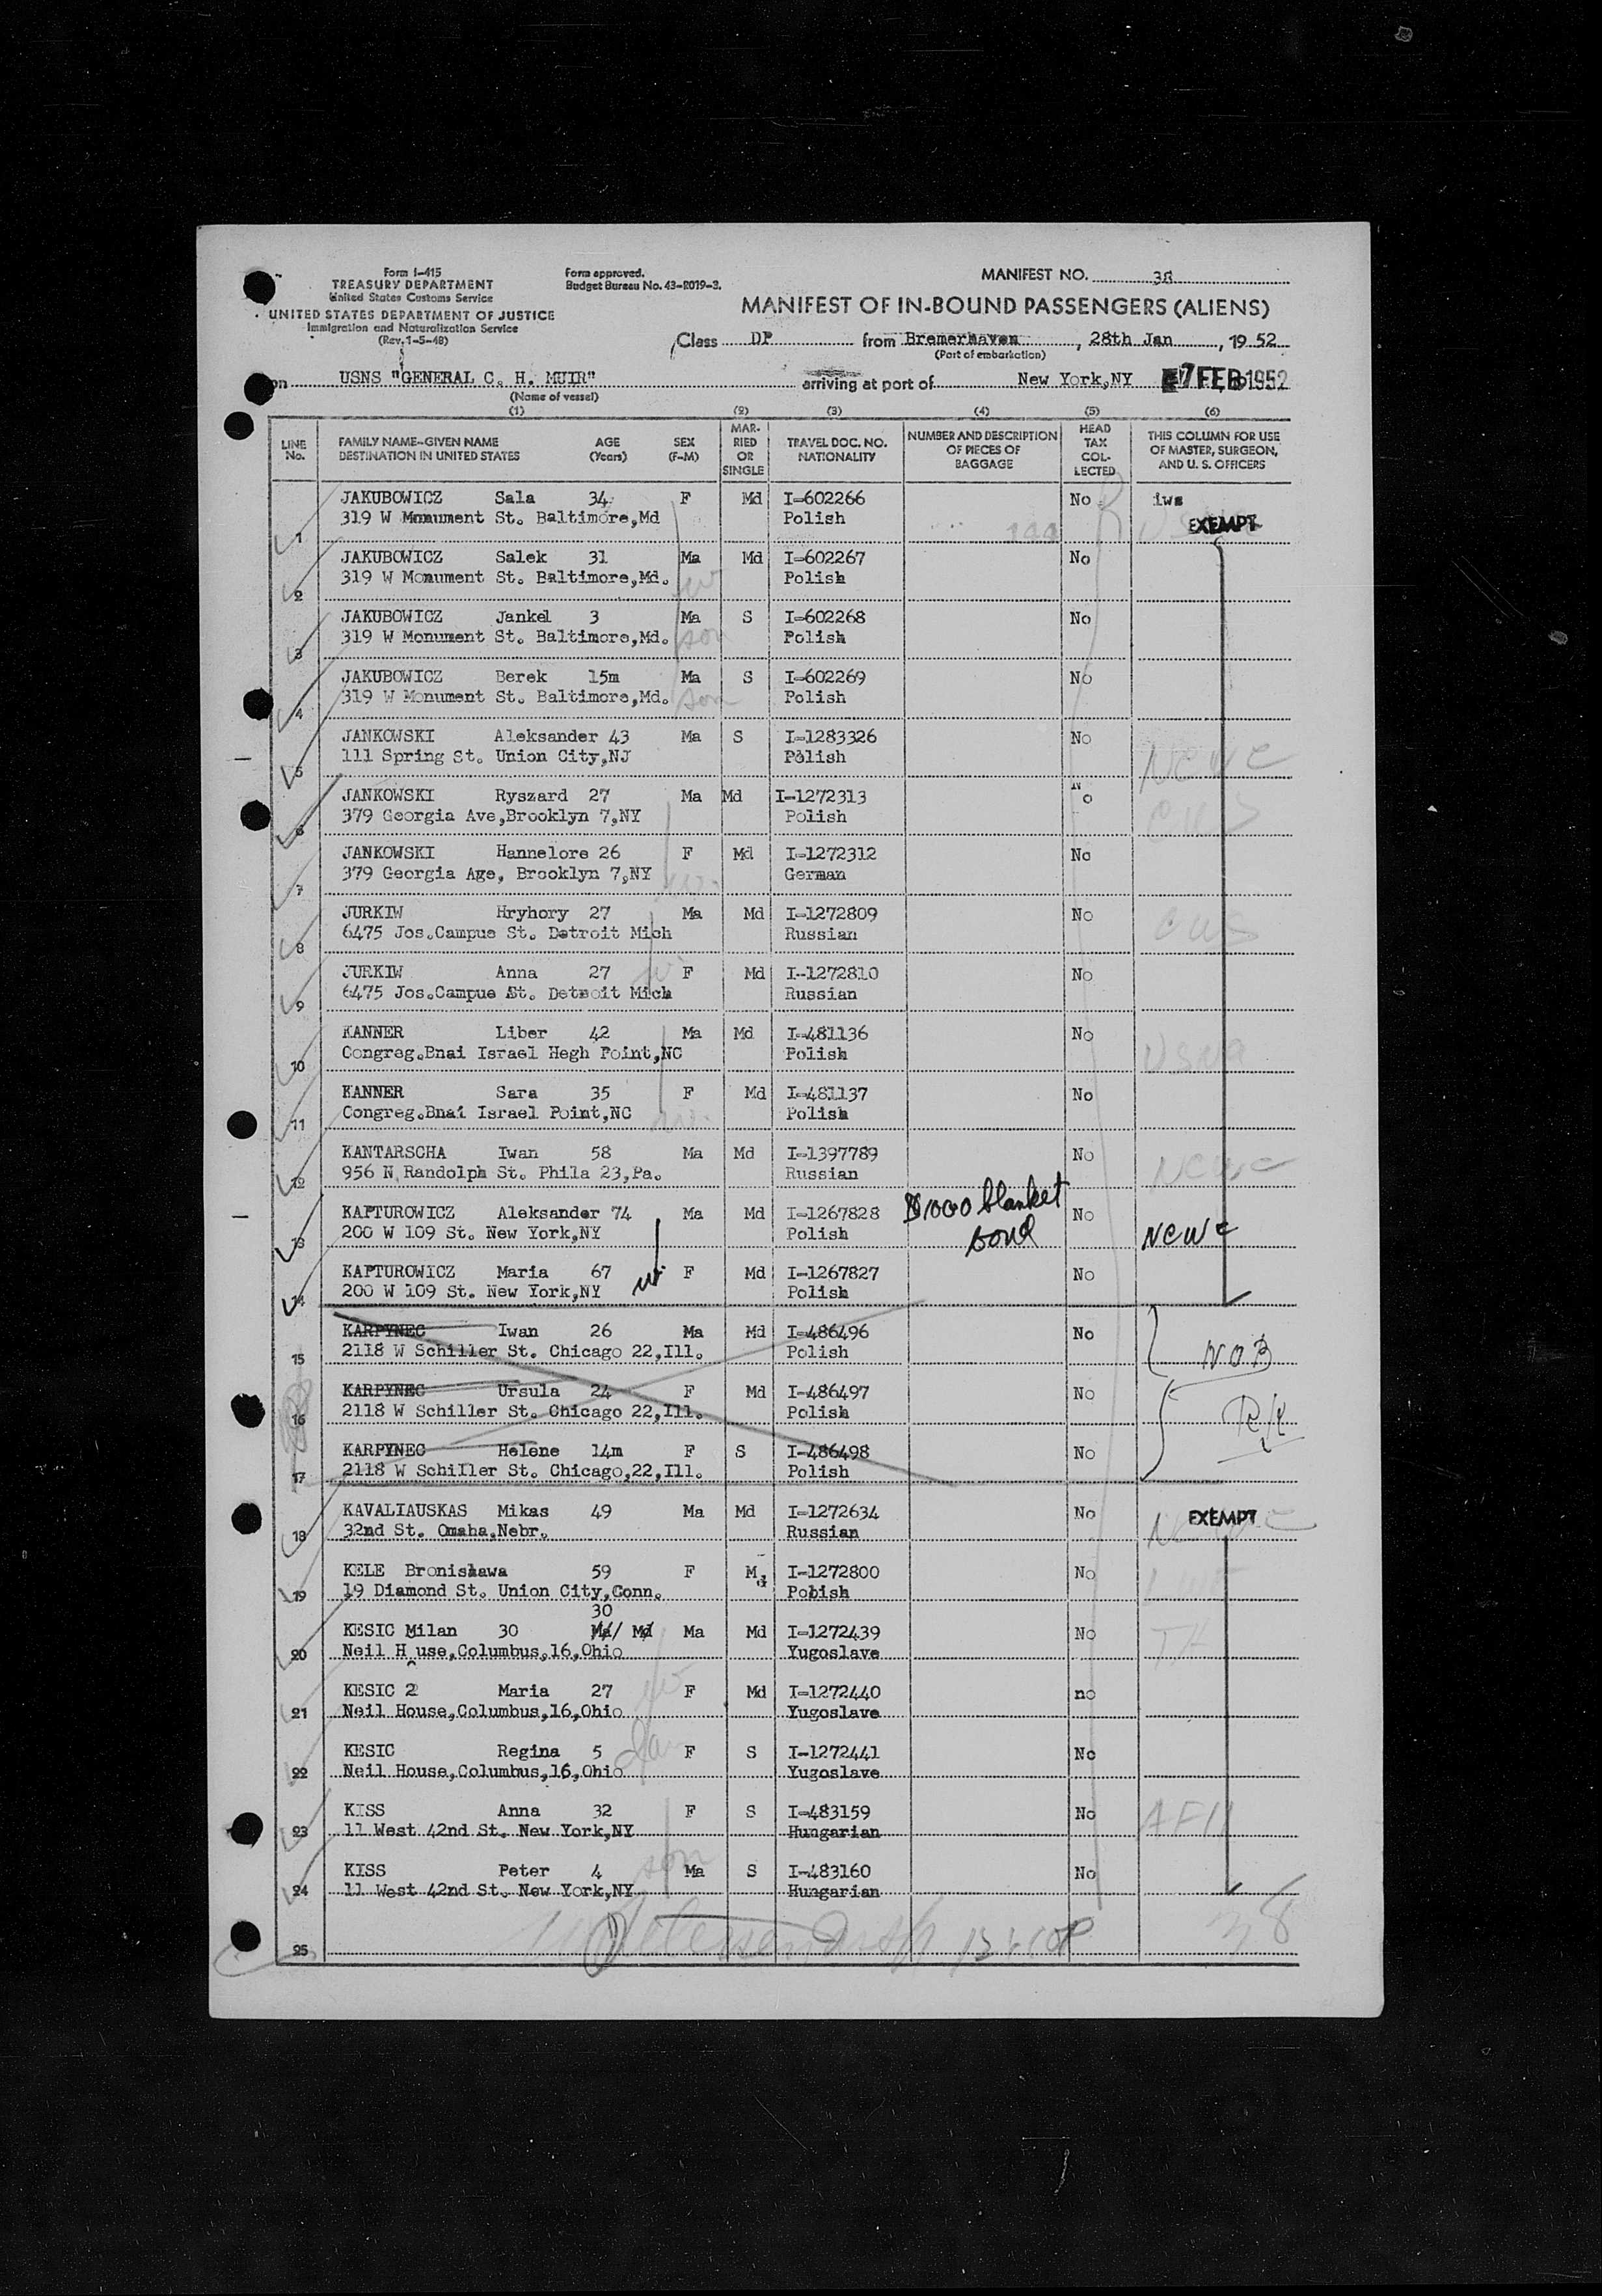 Form I-415
TREASURY DEPARTMENT
United States Customs Service
UNITED STATES DEPARTMENT OF JUSTICE
Immigration and Naturalization Service
(Rev. 1-5-48)
Form approved.
Budget Bureau No. 43-R019-3.
MANIFEST NO. 38
MANIFEST OF IN-BOUND PASSENGERS (ALIENS)
Class DP from Bremerhaven, 28th Jan, 19 52
(Port of embarkation)
on USNS "GENERAL C. H. MUIR" arriving at port of New York,NY 7 FEB 1952
(Name of vessel)
(1) (2) (3) (4) (5) (6)
LINE No. FAMILY NAME--GIVEN NAME DESTINATION IN UNITED STATES AGE (Years) SEX (F-M) MARRIED OR SINGLE TRAVEL DOC. NO. NATIONALITY NUMBER AND DESCRIPTION OF PIECES OF BAGGAGE HEAD TAX COLLECTED THIS COLUMN FOR USE OF MASTER, SURGEON, AND U. S. OFFICERS
JAKUBOWICZ Sala 34 F Md I-602266 No iws
1 319 W Monument St. Baltimore,Md Polish EXEMPT
JAKUBOWICZ Salek 31 Ma Md I-602267 No
2 319 W Monument St. Baltimore,Md. Polish w
JAKUBOWICZ Jankel 3 Ma S I-602268 No
3 319 W Monument St. Baltimore,Md. Polish son
JAKUBOWICZ Berek 15m Ma S I-602269 No
4 319 W Monument St. Baltimore,Md. Polish son
JANKOWSKI Aleksander 43 Ma S I-1283326 No
5 111 Spring St. Union City,NJ Polish NCWC
JANKOWSKI Ryszard 27 Ma Md I-1272313 No
6 379 Georgia Ave,Brooklyn 7,NY Polish CWS
JANKOWSKI Hannelore 26 F Md I-1272312 No
7 379 Georgia Age, Brooklyn 7,NY German w.
JURKIW Hryhory 27 Ma Md I-1272809 No
8 6475 Jos.Campue St. Detroit Mich Russian CWS
JURKIW Anna 27 w F Md I-1272810 No
9 6475 Jos.Campue St. Detroit Mich Russian
KANNER Liber 42 Ma Md I-481136 No
10 Congreg.Bnai Israel Hegh Point,NC Polish USNA
KANNER Sara 35 F Md I-481137 No
11 Congreg.Bnai Israel Point,NC Polish w.
KANTARSCHA Iwan 58 Ma Md I-1397789 No
12 956 N.Randolph St. Phila 23,Pa. Russian NCWC
KAPTUROWICZ Aleksander 74 Ma Md I-1267828 $1000 blanket No
13 200 W 109 St. New York,NY Polish bond NCWC
KAPTUROWICZ Maria 67 w. F Md I-1267827 No
14 200 W 109 St. New York,NY Polish
KARPYNEC Iwan 26 Ma Md I-486496 No
15 2118 W Schiller St. Chicago 22,Ill. Polish NOB
KARPYNEC Ursula 24 F Md I-486497 No
16 2118 W Schiller St. Chicago 22,Ill. Polish
KARPYNEC Helene 14m F S I-486498 No
17 2118 W Schiller St. Chicago,22,Ill. Polish
KAVALIAUSKAS Mikas 49 Ma Md I-1272634 No EXEMPT
18 32nd St. Omaha,Nebr. Russian
KELE Bronislawa 59 F Md I-1272800 No
19 19 Diamond St. Union City,Conn. Polish
30
KESIC Milan 30 Ma/ Md Ma Md I-1272439 No
20 Neil H use,Columbus,16,Ohio Yugoslave
KESIC 2 Maria 27 F Md I-1272440 no
21 Neil House,Columbus,16,Ohio Yugoslave
KESIC Regina 5 F S I-1272441 No
22 Neil House,Columbus,16,Ohio Yugoslave
KISS Anna 32 F S I-483159 No
23 11 West 42nd St. New York,NY Hungarian
KISS Peter 4 son Ma S I-483160 No
24 11 West 42nd St. New York,NY Hungarian
25 38